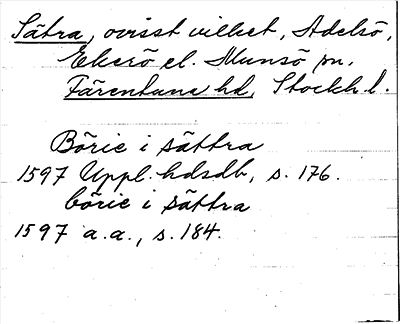 Sätra, ovisst vilket, Adelsö,
Ekerö el. Munsö sn,
Färentuna hd, Stockh. l.
Börie i sättra
1597 Uppl. hdsdb, s. 176.
börie i sättra
1597 a.a., s. 184.